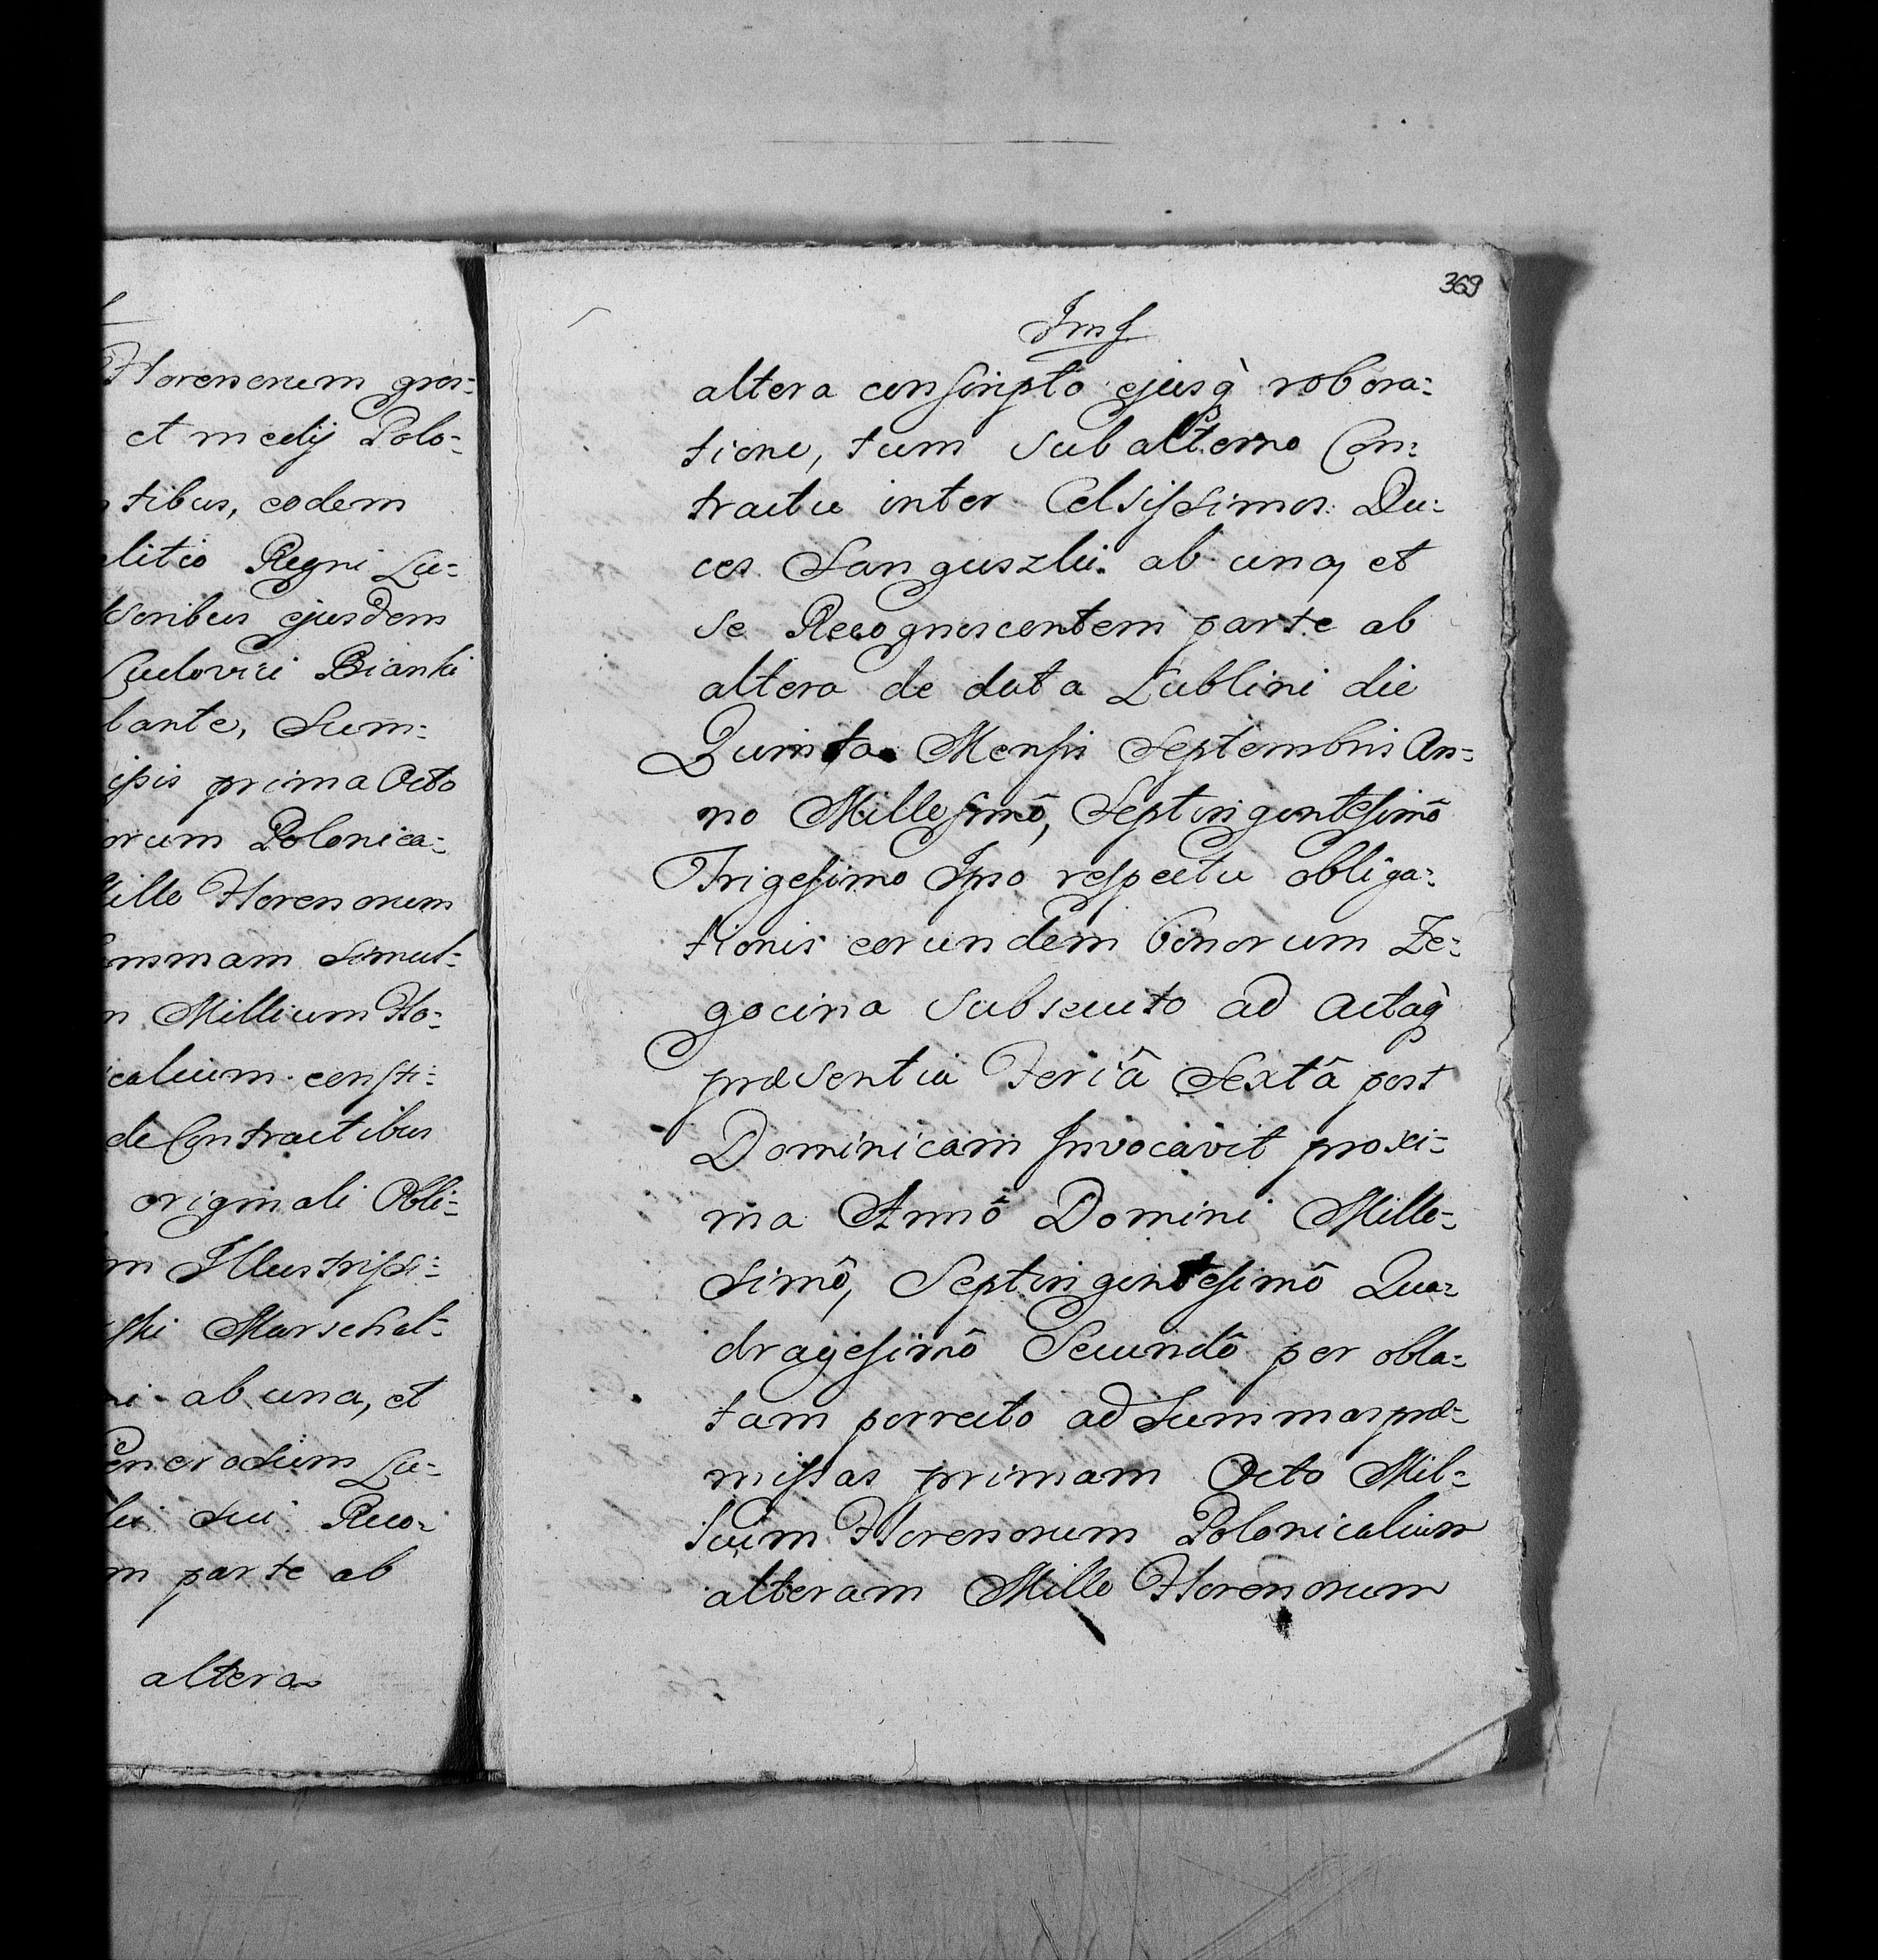 Florenorum gros=
et medij Polo=
tibus, eodem
litio Regni Lu=
soribus ejusdem
Ludovici Bianki
lante, Sum=
ipsis prima Octo
orum Polonica=
Mille Florenorum
Summam simul=
n Millium Flo=
icalium consti=
de Contractibus
originali Obli=
m Illustrissi=
ski Marschal=
ab una, et
Generosum Lu=
sui Reco=
m parte ab
altera
369
altera conscripto ejusq̀ robora=
tione, tum subalterno Con=
tractu inter Celsissimos Du=
ces Sanguszki ab una, et
se Recognoscentem parte ab
altera de data Lublini die
Quinta Mensis Septembris An=
no Millesimô, Septingentesimô
Trigesimo Imo respectu obliga=
tionis eorundem bonorum Ze=
gocina subsecuto ad Actaq̀
præsentia Feriâ Sextâ post
Dominicam Invocavit proxi=
ma Annô Domini Mille=
simô, Septingentesimô Qua=
dragesimô Secundô per obla=
tam porrecto ad Summas præ=
missas primam Octo Mil=
lium Florenorum Polonicalium
alteram Mille Florenorum